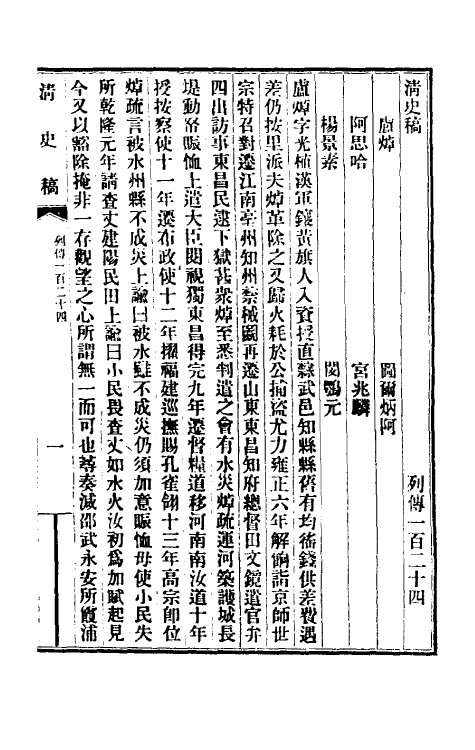 清史稿　列傳一百二十四
盧焯　圖爾炳阿
阿思哈　宮兆麟
楊景素　閔鶚元
盧焯字光植漢軍鑲黃旗人入資授直隸武邑知縣縣舊有均徭錢供差費遇
差仍按里派夫焯革除之又歸火耗於公捕盜尤力雍正六年解餉詣京師世
宗特召對遷江南亳州知州禁械鬬再遷山東東昌知府總督田文鏡遣官弁
四出訪事東昌民逮下獄甚衆焯至悉判遣之會有水災焯疏運河築護城長
堤動帑賑恤上遣大臣閱視獨東昌得完九年遷督糧道移河南南汝道十年
授按察使十一年遷布政使十二年擢福建巡撫賜孔雀翎十三年高宗卽位
焯疏言被水州縣不成災上諭曰被水雖不成災仍須加意賑恤毋使小民失
所乾隆元年請查丈建陽民田上諭曰小民畏查丈如水火汝初爲加賦起見
今又以豁除掩非一存觀望之心所謂無一而可也尋奏減邵武永安所霞浦
清史稿　列傳一百二十四　一